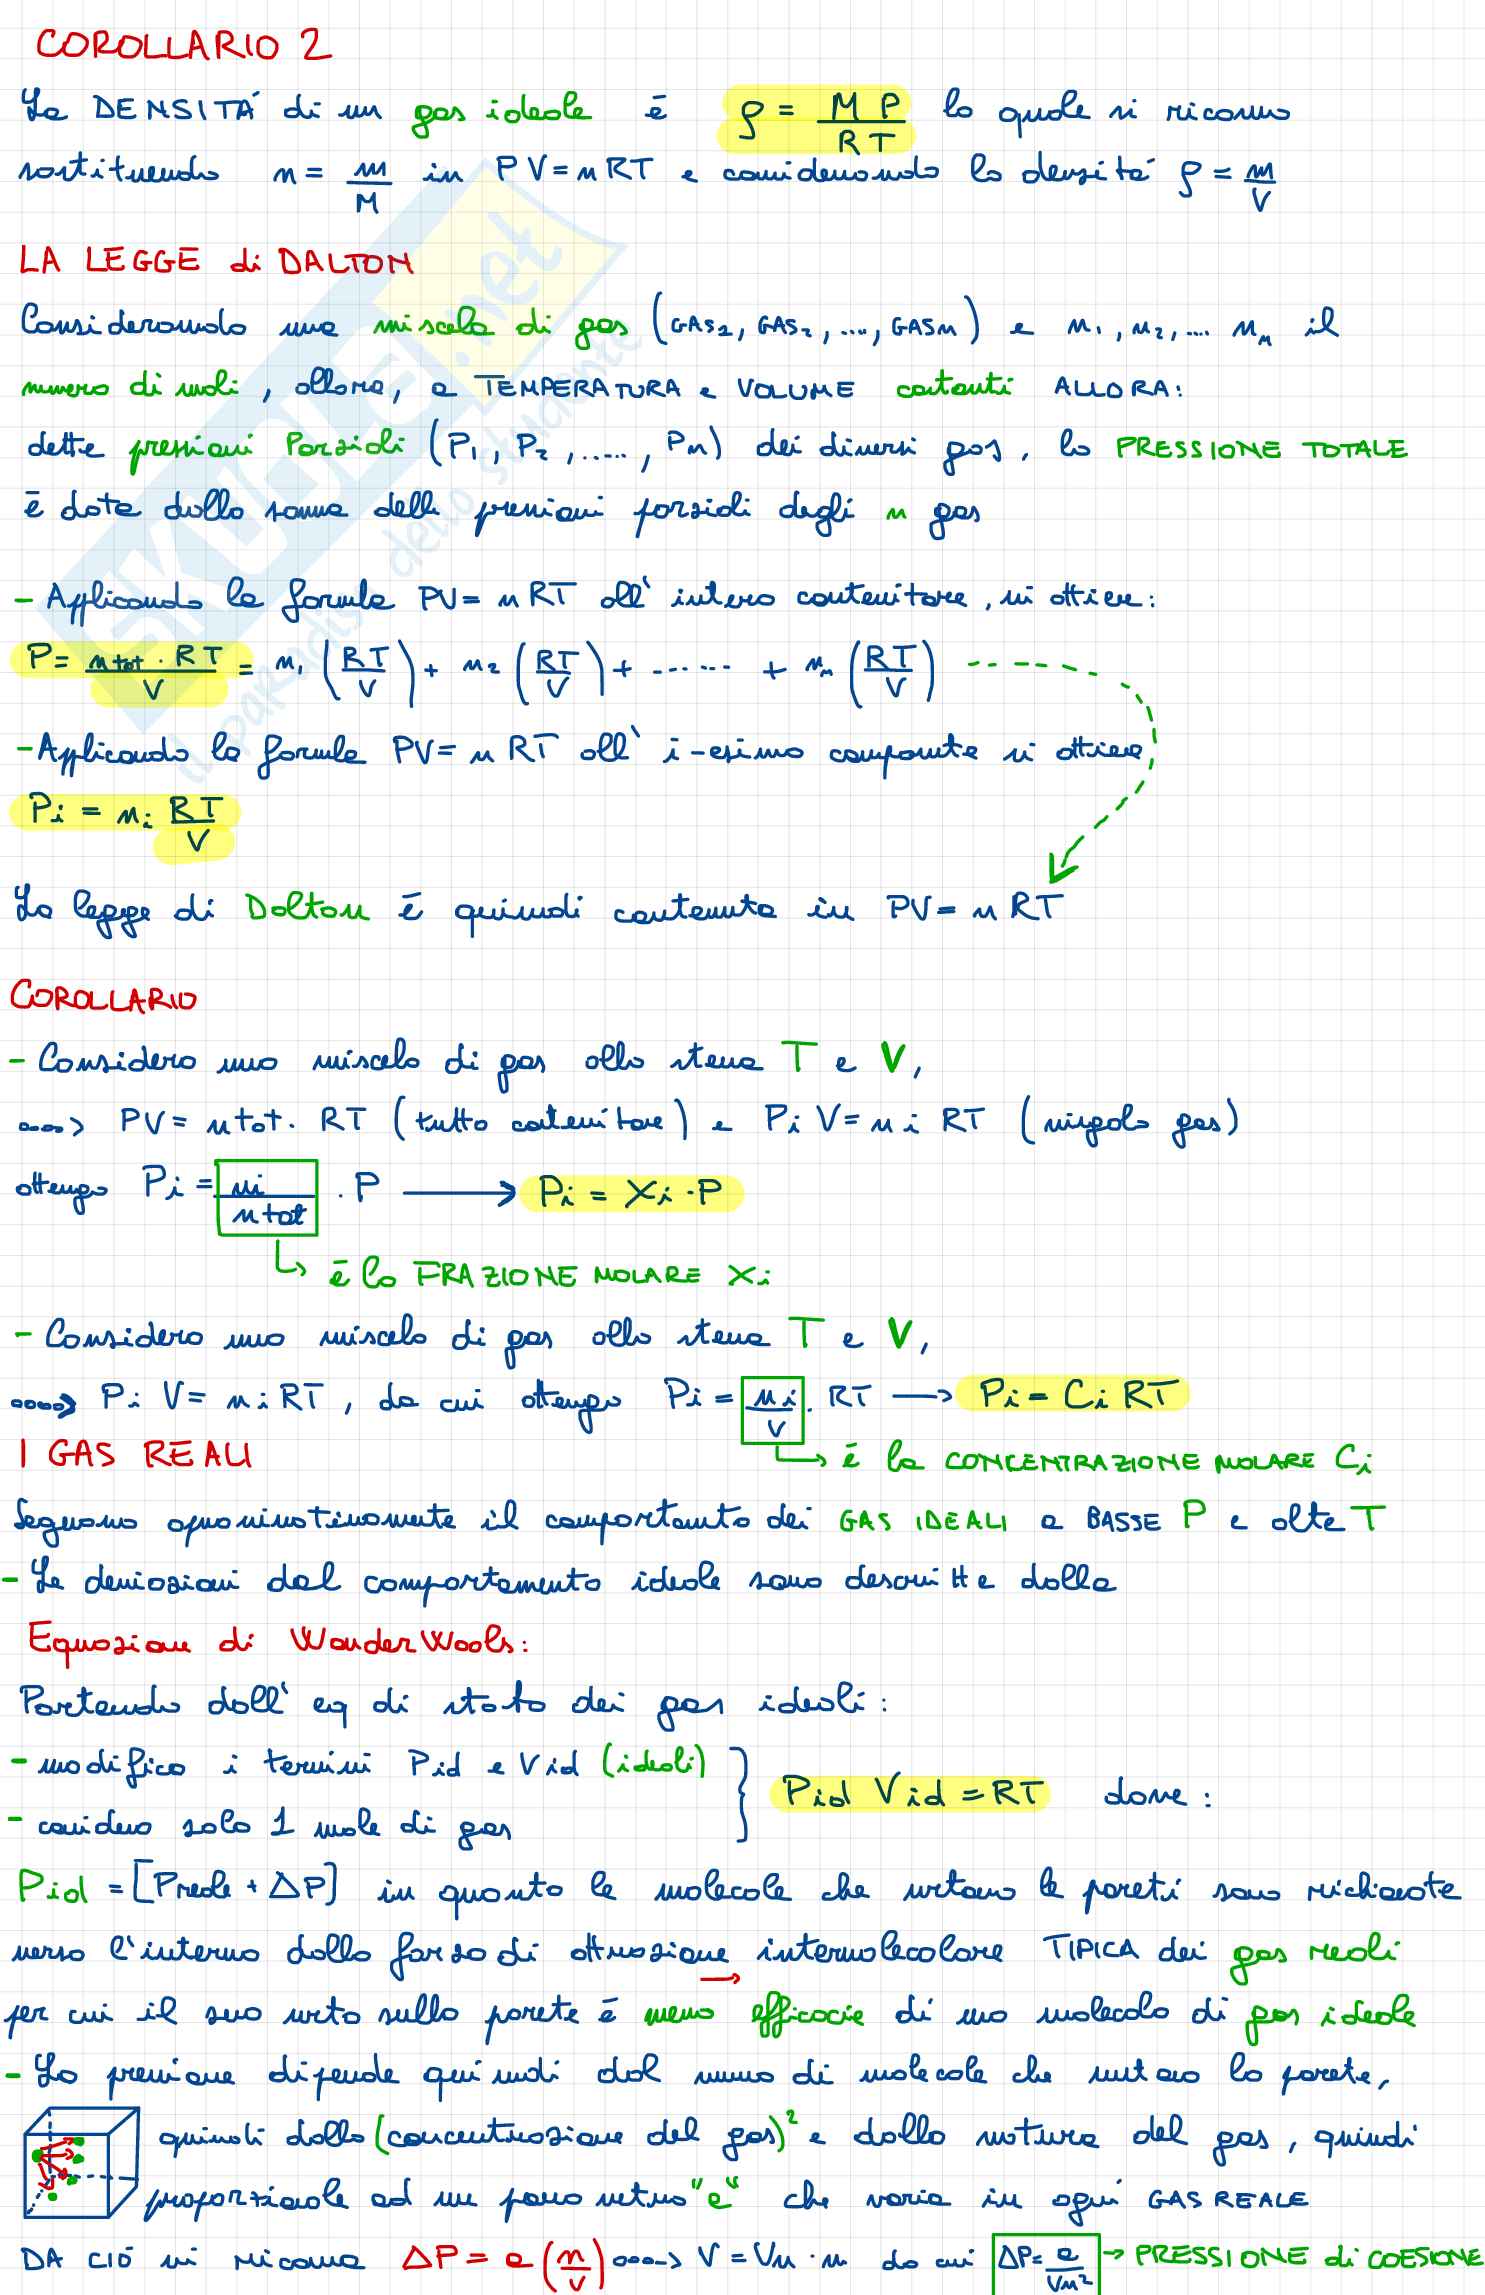 COROLLARIO 2
La DENSITÁ di un gas ideale é ρ = M P / R T la quale si ricava
sostituendo n = m/M in PV = nRT e considerando la densitá ρ = m/V
LA LEGGE di DALTON
Considerando una miscela di gas (GAS1, GAS2, ..., GASn) e n1, n2, .... nn il
numero di moli, allora, a TEMPERATURA e VOLUME costanti ALLORA:
dette pressioni Parziali (P1, P2, ....., Pn) dei diversi gas, la PRESSIONE TOTALE
é data dalla somma delle pressioni parziali degli n gas
- Applicando la formula PV = nRT all' intero contenitore, si ottiene:
P = ntot · RT / V = n1 (RT/V) + n2 (RT/V) + ...... + nn (RT/V)
- Applicando la formula PV = nRT all' i-esimo componente si ottiene
Pi = ni RT/V
La legge di Dalton é quindi contenuta in PV = nRT
COROLLARIO
- Considero una miscela di gas alla stessa T e V,
PV = ntot · RT (tutto contenitore) e Pi V = ni RT (singolo gas)
ottengo Pi = ni/ntot · P → Pi = Xi · P
é la FRAZIONE MOLARE Xi
- Considero una miscela di gas alla stessa T e V,
Pi V = ni RT, da cui ottengo Pi = ni/V · RT → Pi = Ci RT
é la CONCENTRAZIONE MOLARE Ci
I GAS REALI
Seguono approssimativamente il comportamento dei GAS IDEALI a BASSE P e alte T
- Le deviazioni dal comportamento ideale sono descritte dalla
Equazione di Wander Waals:
Partendo dall' eq di stato dei gas ideali:
- modifico i termini Pid e Vid (ideali)
- considero solo 1 mole di gas
Pid Vid = RT dove:
Pid = [Preale + ΔP] in quanto le molecole che urtano le pareti sono richiamate
verso l'interno dalla forza di attrazione intermolecolare TIPICA dei gas reali
per cui il suo urto sulla parete é meno efficace di una molecola di gas ideale
- La pressione dipende quindi dal numero di molecole che urtano la parete,
quindi dalla (concentrazione del gas)² e dalla natura del gas, quindi
proporzionale ad un parametro "a" che varia in ogni GAS REALE
DA CIÓ si ricava ΔP = a (n/V) → V = Vm · n da cui ΔP = a/Vm² → PRESSIONE di COESIONE
SKUOLA.net
il paradiso dello studente